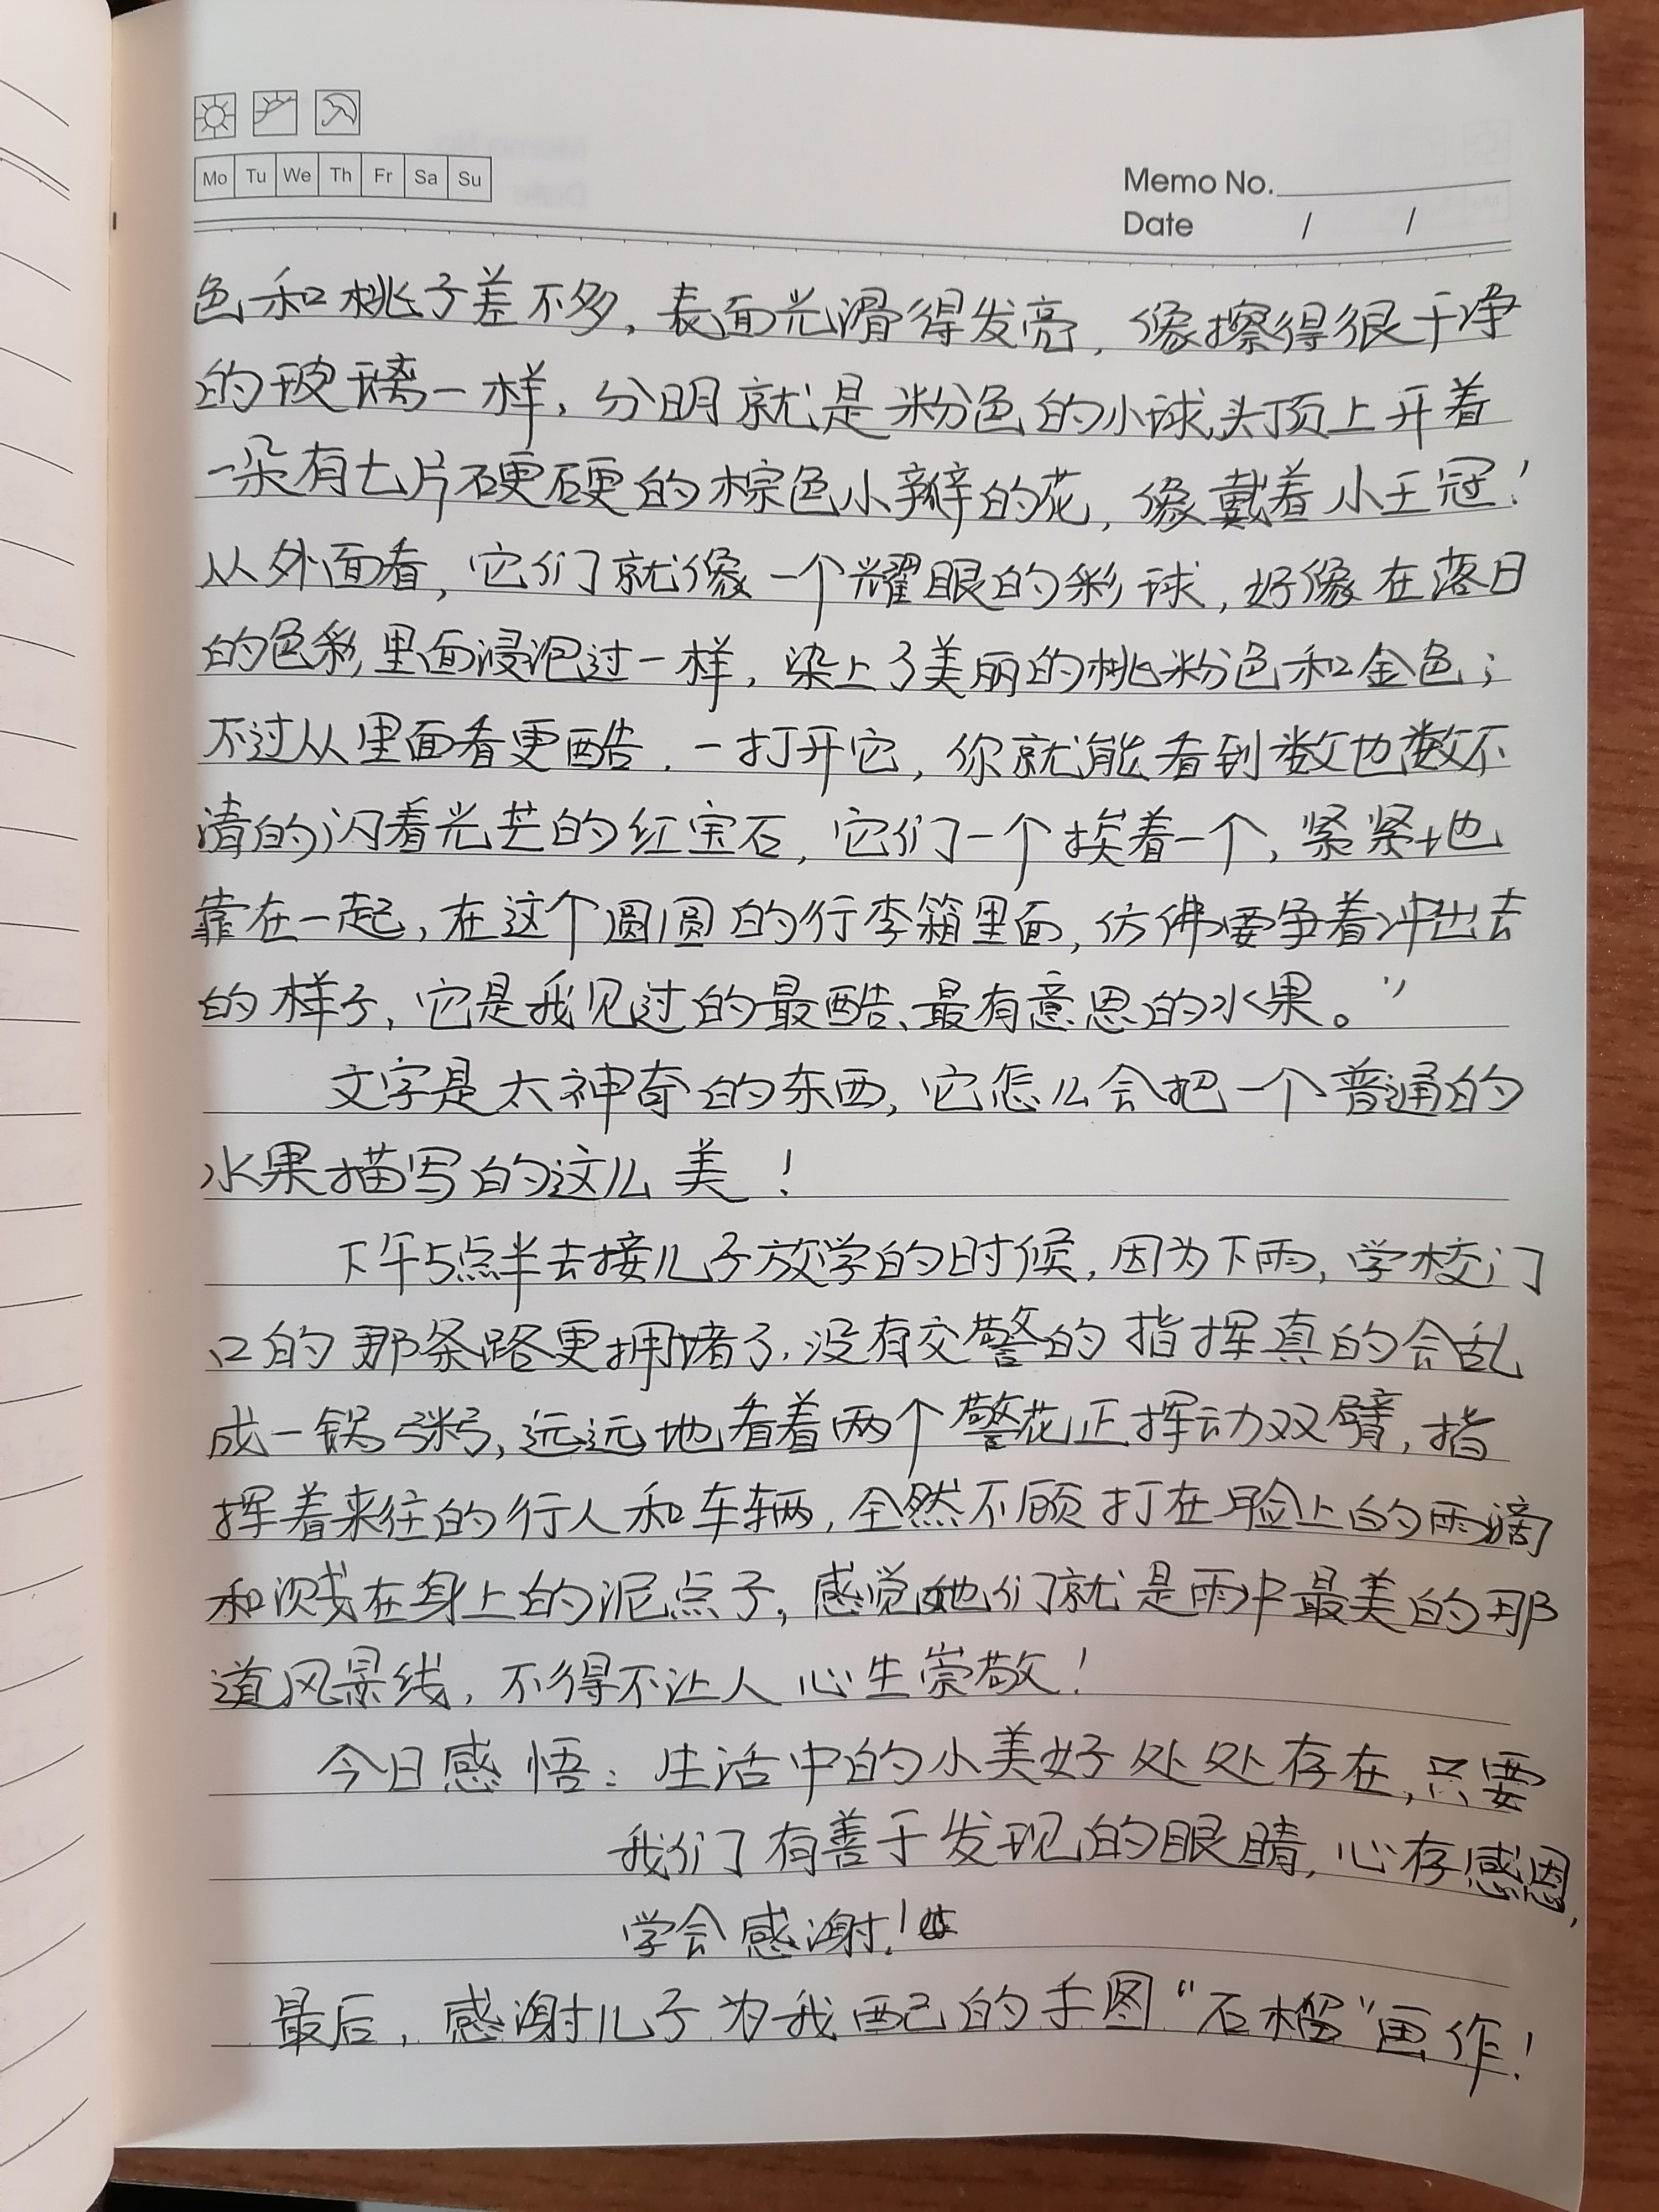 Mo Tu We Th Fr Sa Su
Memo No.
Date / /
色和桃子差不多，表面光滑得发亮，像擦得很干净
的玻璃一样，分明就是粉色的小球，头顶上开着
一朵有七片硬硬的棕色小瓣的花，像戴着小王冠！
从外面看，它们就像一个耀眼的彩球，好像在落日
的色彩里面浸泡过一样，染上了美丽的桃粉色和金色；
不过从里面看更酷，一打开它，你就能看到数也数不
清的闪着光芒的红宝石，它们一个挨着一个，紧紧地
靠在一起，在这个圆圆的行李箱里面，仿佛要争着冲出去
的样子，它是我见过的最酷、最有意思的水果。”
文字是太神奇的东西，它怎么会把一个普通的
水果描写的这么美！
下午5点半去接儿子放学的时候，因为下雨，学校门
口的那条路更拥堵了，没有交警的指挥真的会乱
成一锅粥，远远地看着两个警花正挥动双臂，指
挥着来往的行人和车辆，全然不顾打在脸上的雨滴
和溅在身上的泥点子，感觉她们就是雨中最美的那
道风景线，不得不让人心生崇敬！
今日感悟：生活中的小美好处处存在，只要
我们有善于发现的眼睛，心存感恩，
学会感谢！
最后，感谢儿子为我配的手图“石榴”画作！